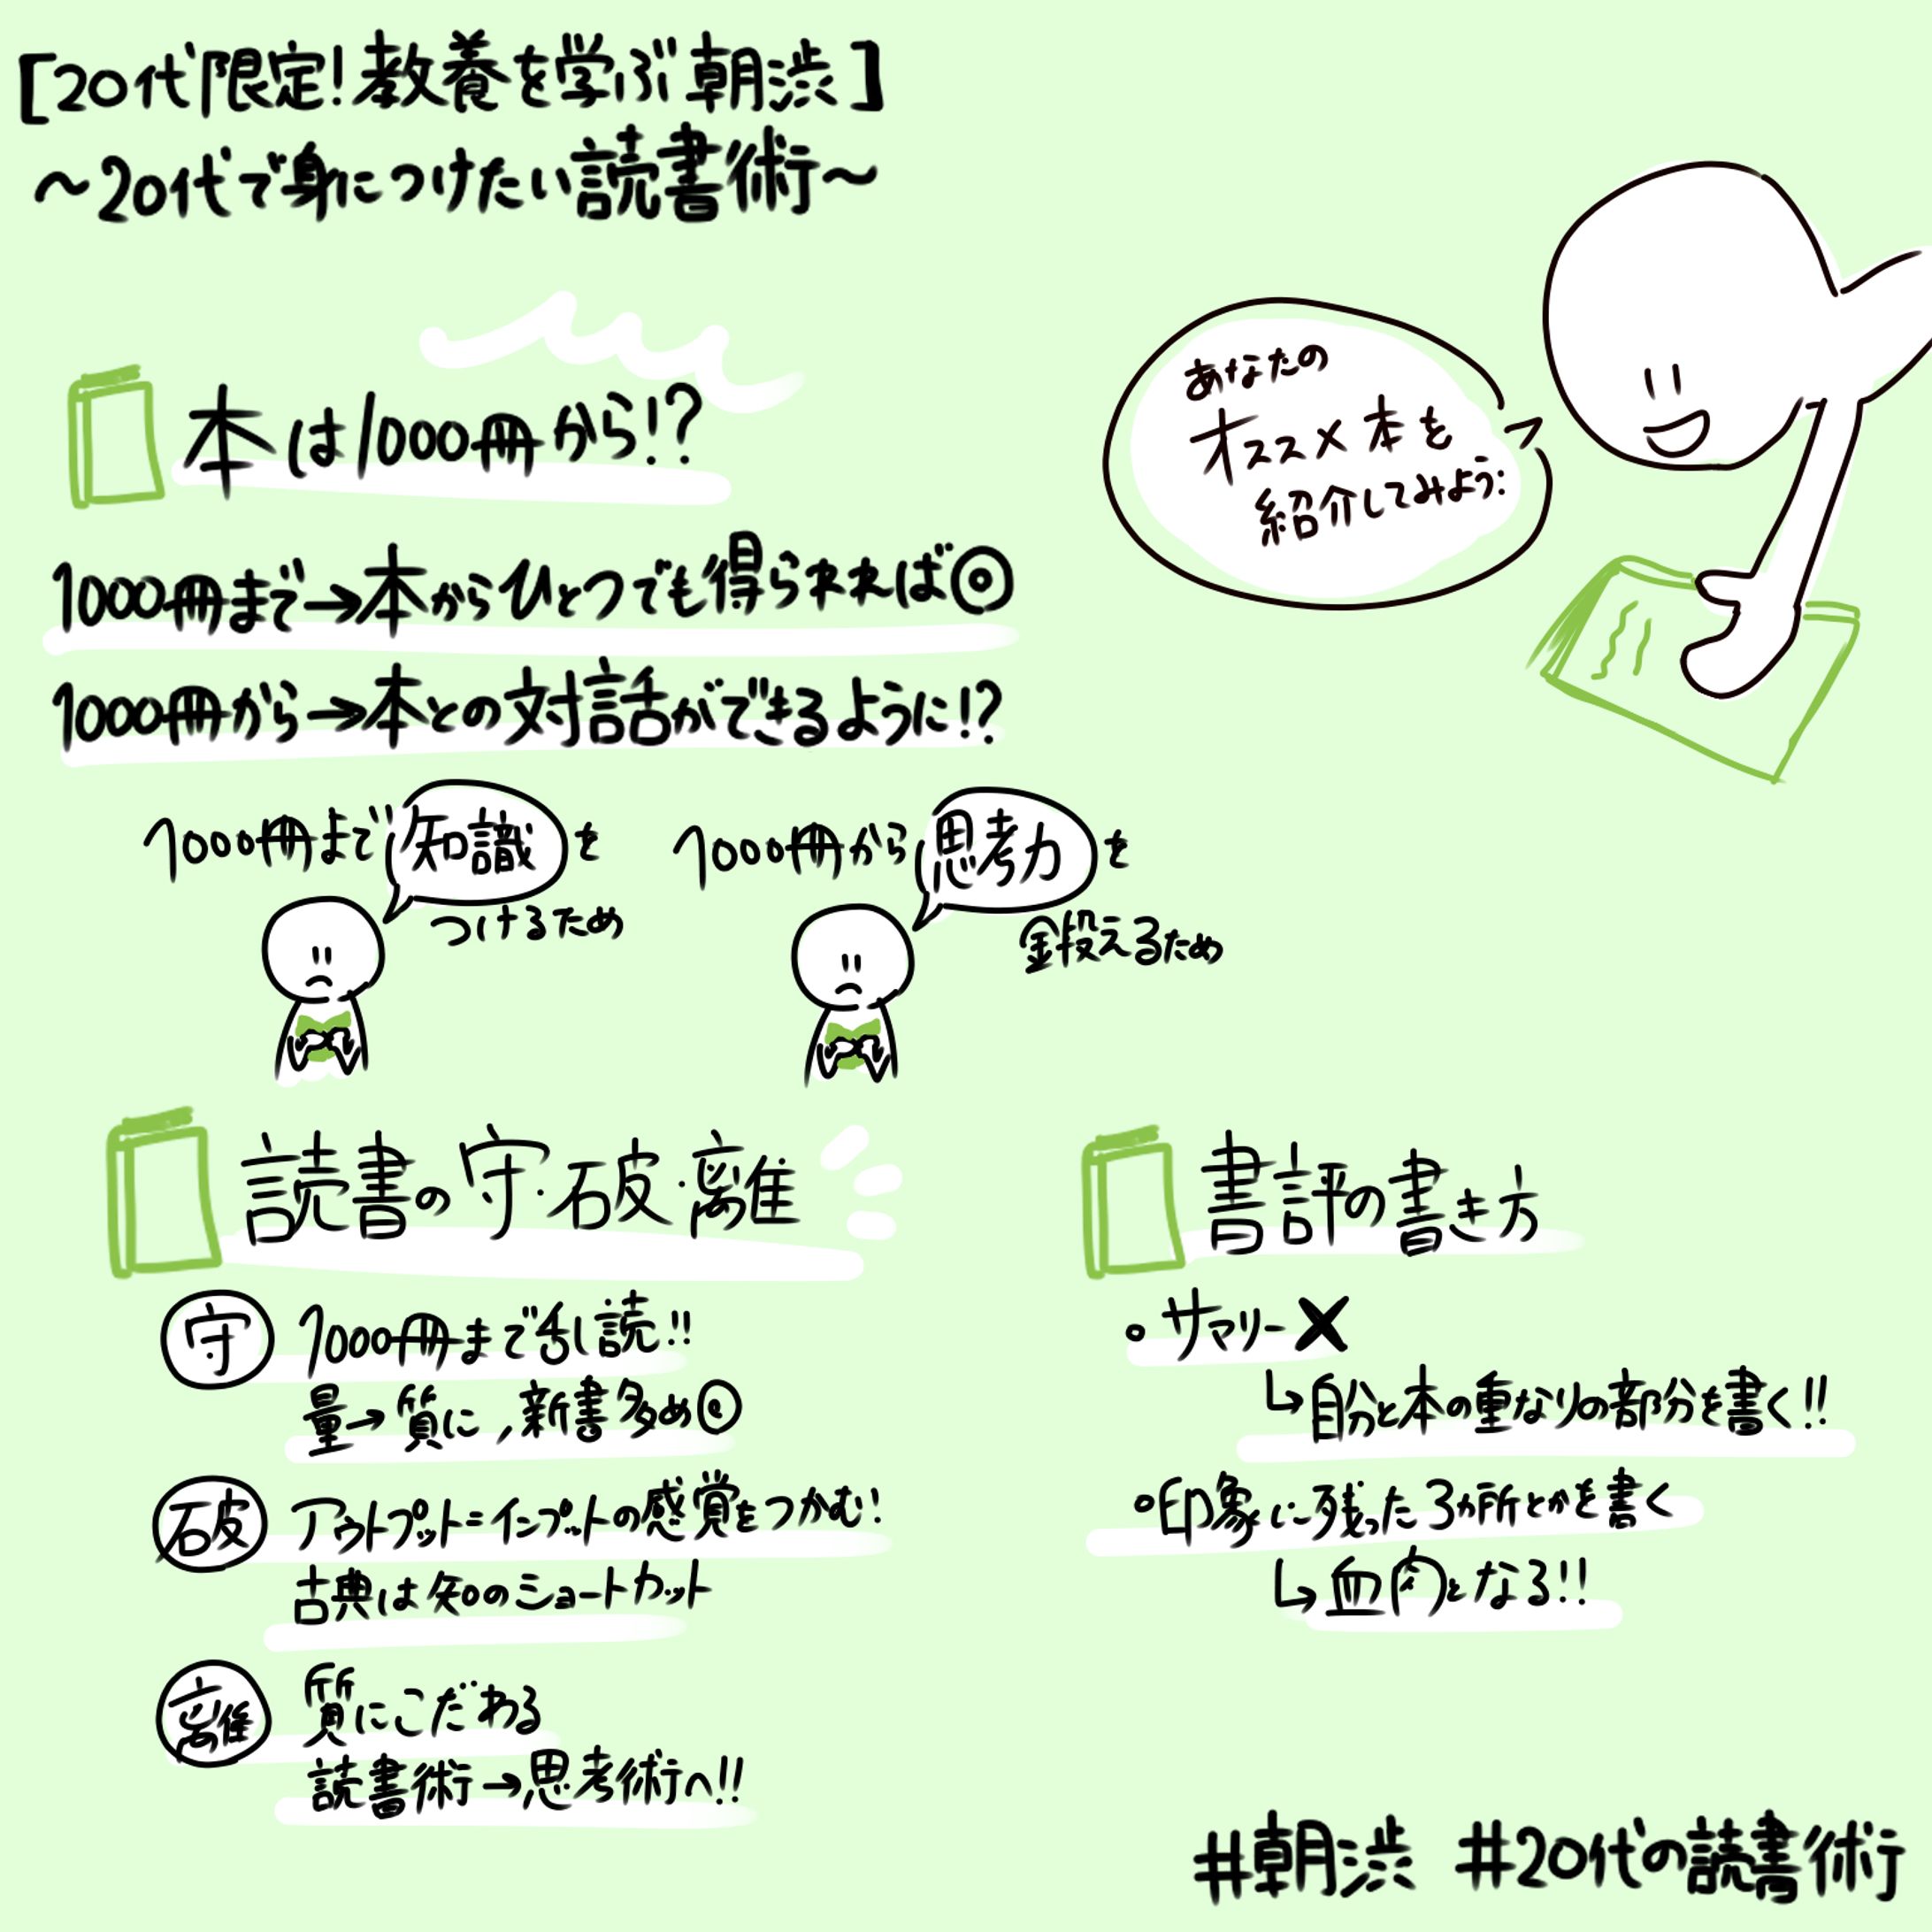 [20代限定!教養を学ぶ朝渋]
〜20代で身につけたい読書術〜
あなたの
オススメ本を
紹介してみよう:
本は1000冊から!?
1000冊まで→本からひとつでも得られれば◎
1000冊から→本との対話ができるように!?
1000冊まで知識を
つけるため
1000冊から思考力を
鍛えるため
読書の守・破・離
守 1000冊まで乱読!!
量→質に,新書多め◎
破 アウトプット=インプットの感覚をつかむ!
古典は知のショートカット
離 質にこだわる
読書術→思考術へ!!
書評の書き方
○サマリー✕
↳自分と本の重なりの部分を書く!!
○印象に残った3ヵ所とかを書く
↳血肉となる!!
#朝渋 #20代の読書術